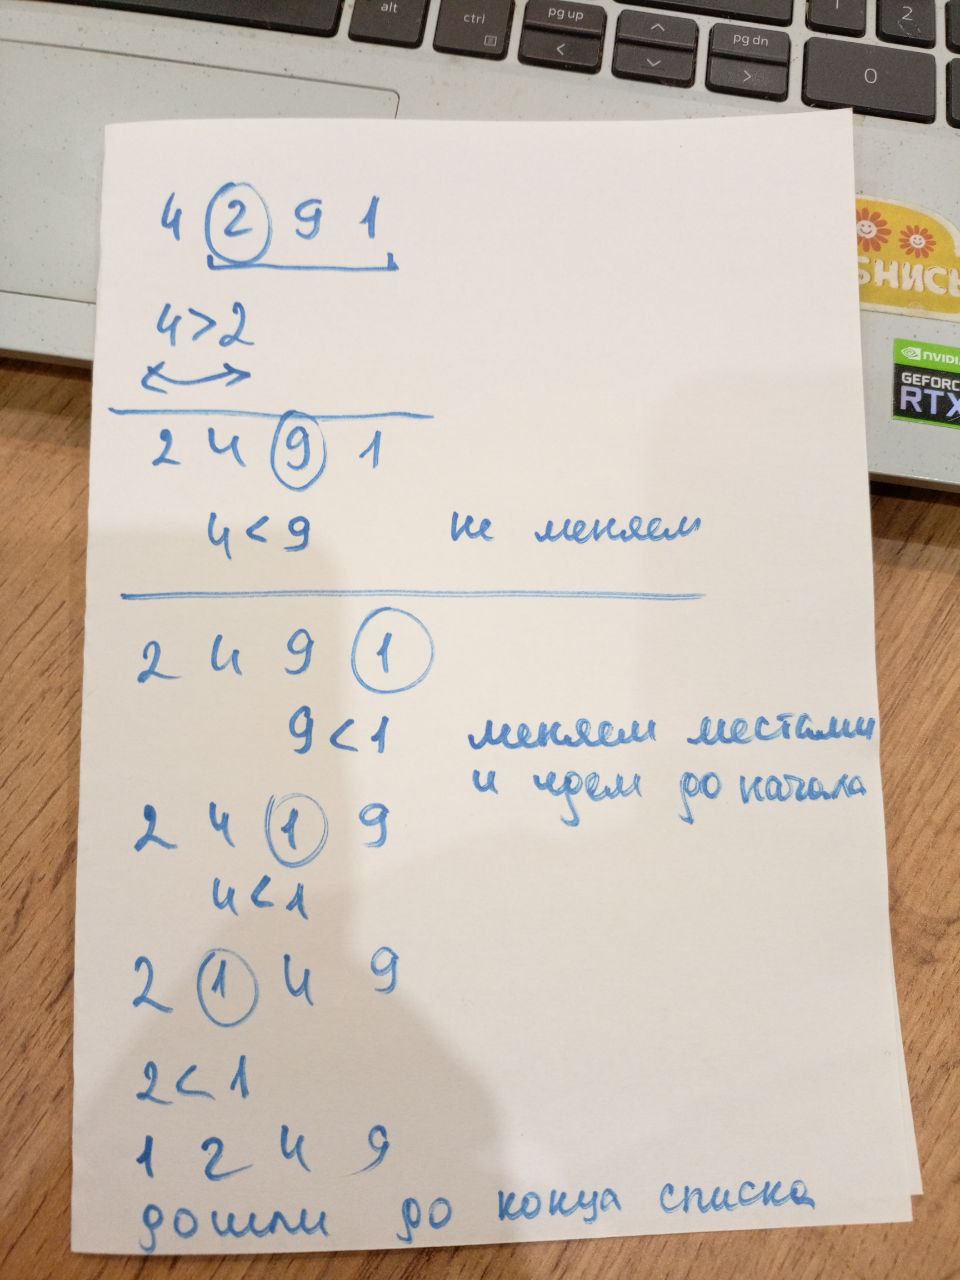 alt
ctrl
pg up
<
^
pg dn
>
1
2
0
БНИСЬ
NVIDIA
GEFORC
RTX
4 2 9 1
4>2
2 4 9 1
4<9 не меняем
2 4 9 1
9<1 меняем местами
и идем до начала
2 4 1 9
4<1
2 1 4 9
2<1
1 2 4 9
дошли до конца списка